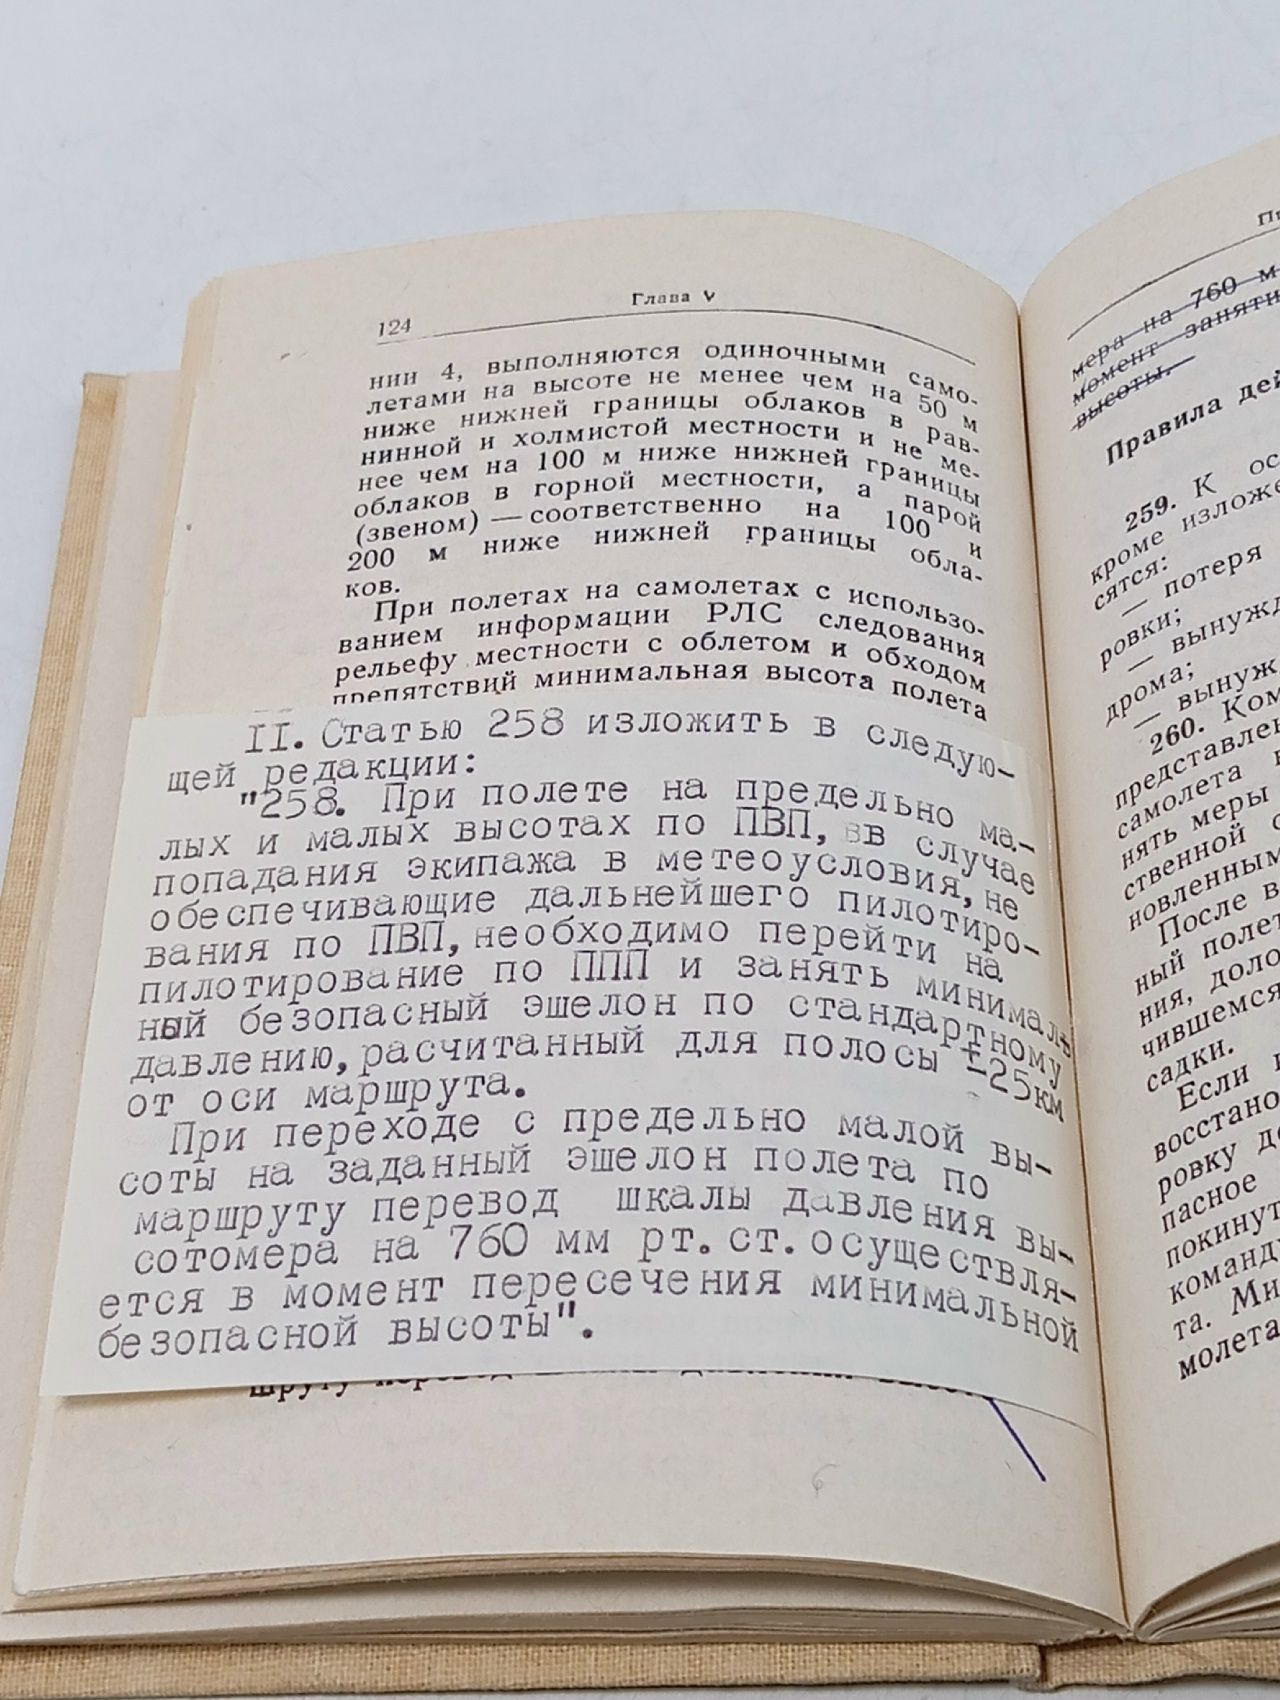 124
Глава V
нии 4, выполняются одиночными само-
летами на высоте не менее чем на 50 м
ниже нижней границы облаков в рав-
нинной и холмистой местности и не ме-
нее чем на 100 м ниже нижней границы
облаков в горной местности, а парой
(звеном) — соответственно на 100 и
200 м ниже нижней границы обла-
ков.
При полетах на самолетах с использо-
ванием информации РЛС следования
рельефу местности с облетом и обходом
препятствий минимальная высота полета
II. Статью 258 изложить в следую-
щей редакции:
"258. При полете на предельно ма-
лых и малых высотах по ПВП, в случае
попадания экипажа в метеоусловия, не
обеспечивающие дальнейшего пилотиро-
вания по ПВП, необходимо перейти на
пилотирование по ППП и занять минималь
ный безопасный эшелон по стандартному
давлению, расчитанный для полосы ±25км
от оси маршрута.
При переходе с предельно малой вы-
соты на заданный эшелон полета по
маршруту перевод шкалы давления вы-
сотомера на 760 мм рт. ст. осуществля-
ется в момент пересечения минимальной
безопасной высоты".
шруту перевод шкалы давления высото
мера на 760 м
момент заняти
высоты.
Правила дей
259. К ос
кроме изложе
сятся:
— потеря
ровки;
— вынужд
дрома;
— вынуж
260. Ком
представлен
самолета
нять меры
ственной
новленным
После в
ный полет
ния, доло
чившемся
садки.
Если
восстано
ровку до
пасное
покинут
команду
та. Ми
молета